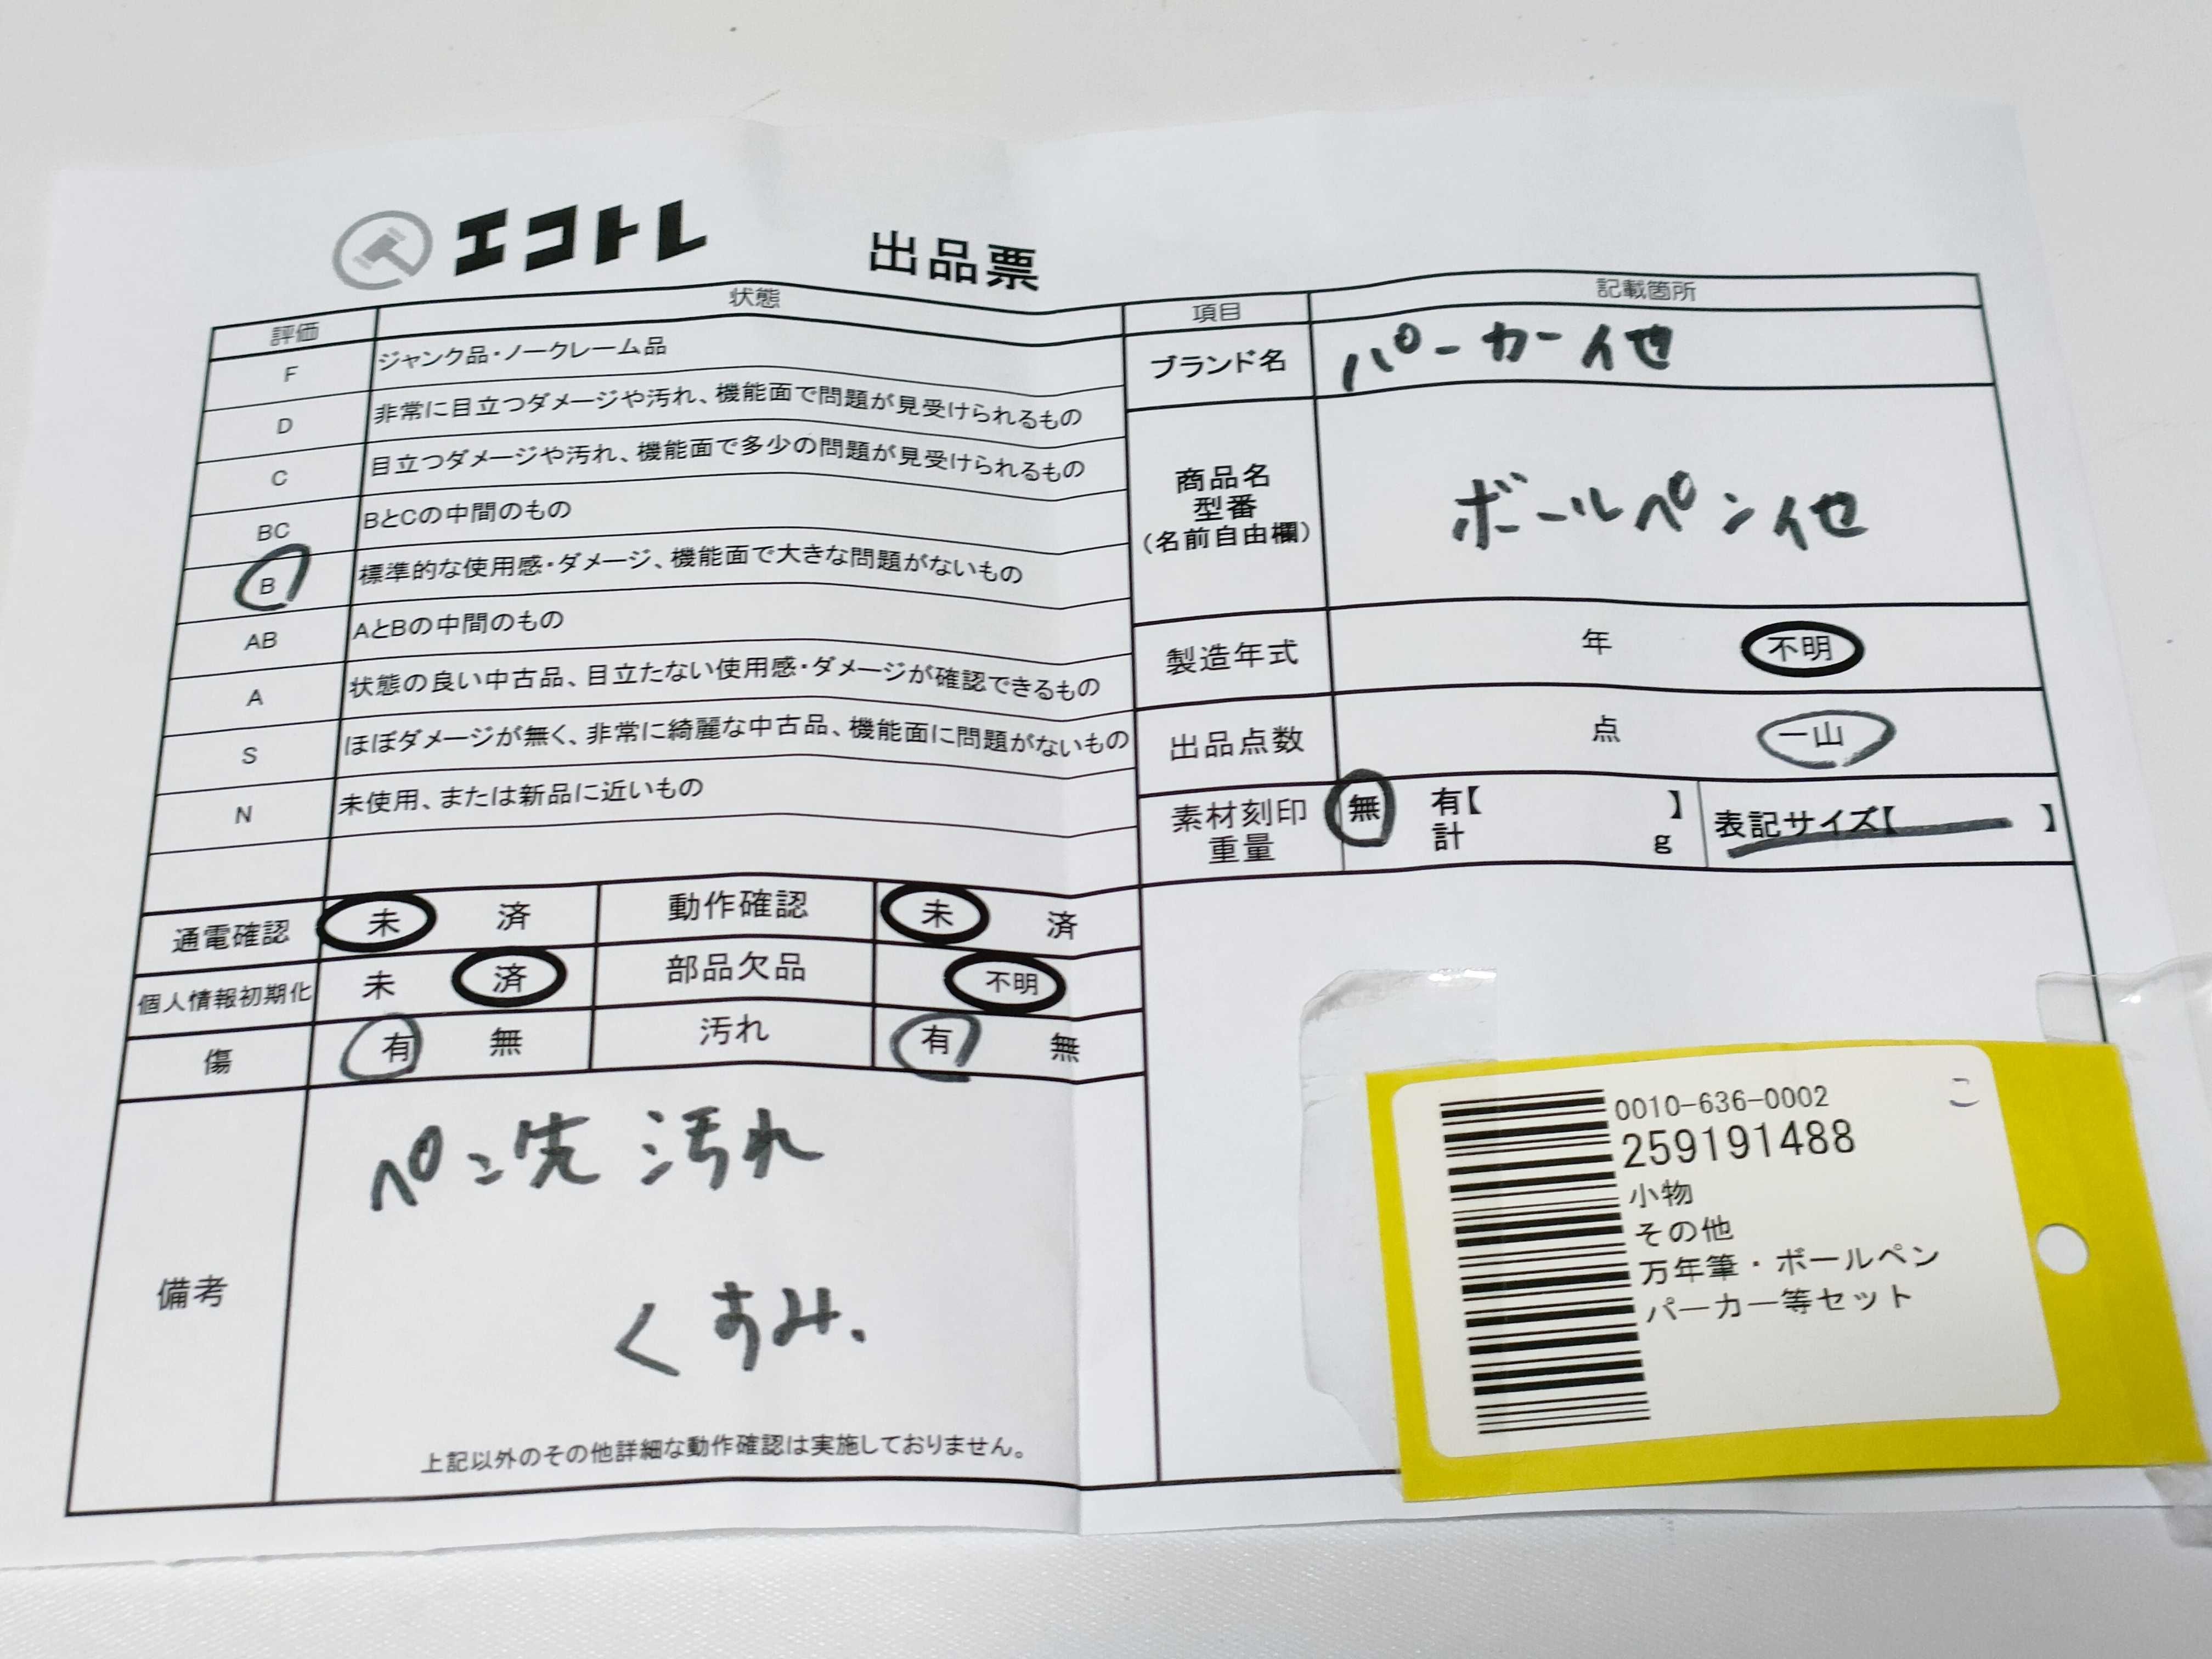 エコトレ 出品票
評価 状態
F ジャンク品・ノークレーム品
D 非常に目立つダメージや汚れ、機能面で問題が見受けられるもの
C 目立つダメージや汚れ、機能面で多少の問題が見受けられるもの
BC BとCの中間のもの
B 標準的な使用感・ダメージ、機能面で大きな問題がないもの
AB AとBの中間のもの
A 状態の良い中古品、目立たない使用感・ダメージが確認できるもの
S ほぼダメージが無く、非常に綺麗な中古品、機能面に問題がないもの
N 未使用、または新品に近いもの
通電確認 未 済 動作確認 未 済
個人情報初期化 未 済 部品欠品 不明
傷 有 無 汚れ 有 無
備考
ペン先 汚れ
くすみ.
上記以外のその他詳細な動作確認は実施しておりません。
項目 記載箇所
ブランド名 パーカー他
商品名
型番
(名前自由欄)
ボールペン他
製造年式 年 不明
出品点数 点 一山
素材刻印 無 有【 】
重量 計 g
表記サイズ【 】
0010-636-0002
こ
259191488
小物
その他
万年筆・ボールペン
パーカー等セット